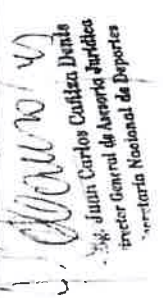 Juan Carlos Cañiza Denis
Director General de Asesoría Jurídica
Secretaría Nacional de Deportes